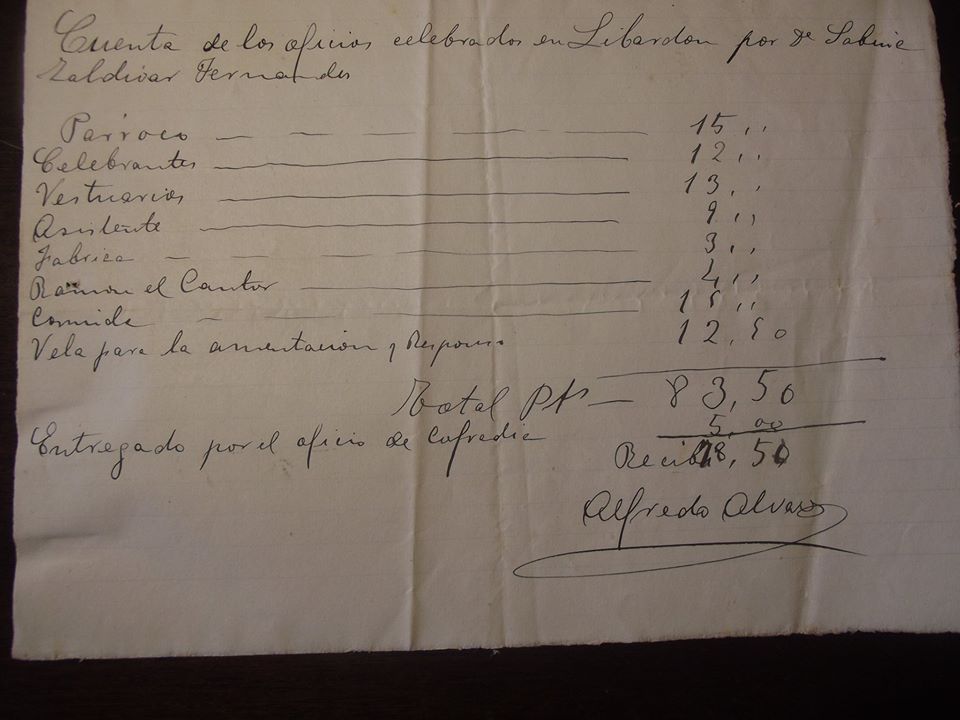 Cuenta de los oficios celebrados en Libardon por Dª Sabina
Zaldivar Fernandes
Párroco — — — — — 15,,
Celebrantes ———— 12,,
Vestuarios ———— 13,,
Asistente ———— 9,,
Fabrica — — — 3,,
Ramon el Cantor ———— 4,,
Comida — — — 15,,
Vela para la amentacion y Responso 12,50
Total Pts — 83,50
5,00
Entregado por el oficio de Cofradia
Recibi 78,50
Alfredo Alvarez